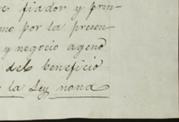 e fiador y prin-
mo por la presen-
y negocio ageno
del beneficio
e la Ley nona